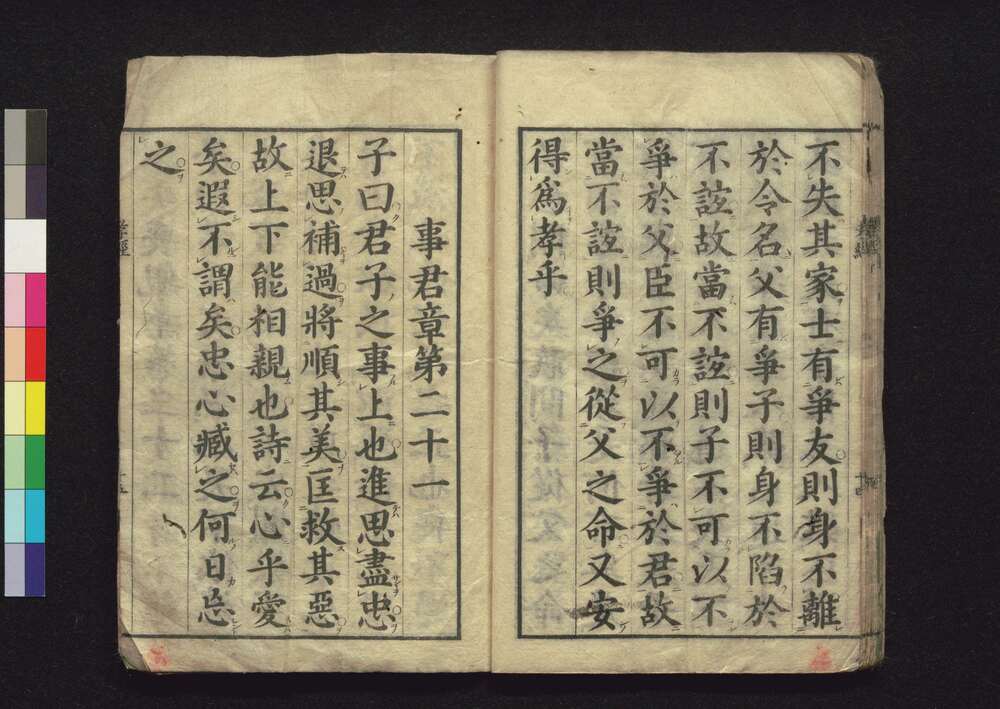 不失其家士有爭友則身不離
於令名父有爭子則身不陷於
不誼故當不誼則子不可以不
爭於父臣不可以不爭於君故
當不誼則爭之從父之命又安
得爲孝乎
事君章第二十一
子曰君子之事上也進思盡忠
退思補過將順其美匡救其惡
故上下能相親也詩云心乎愛
矣遐不謂矣忠心臧之何日忘
之
孝經